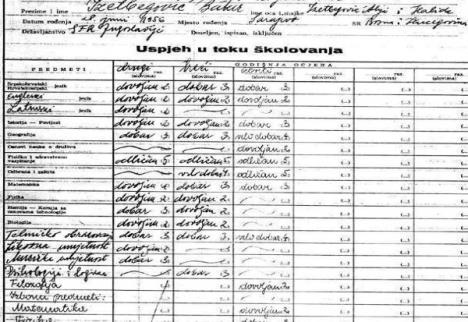 Prezime i ime Izetbegović Bakir ime oca i majke Izetbegović Alija i Halida
Datum rođenja 28. juni 1956 Mjesto rođenja Sarajevo SR Bosna i Hercegovina
Državljanstvo SFR Jugoslavije Doseljen, ispisan, isključen
Uspjeh u toku školovanja
PREDMETI GODIŠNJA OCJENA
drugi raz. treći raz. raz. raz.
Srpskohrvatski Hrvatskosrpski jezik dovoljan 2 dobar 3 dobar
Engleski jezik dovoljan 2 dovoljan 2 dovoljan 2
Latinski jezik dobar 3
Istorija — Povijest dovoljan 2 dovoljan 2 dobar 3
Geografija dobar 3 dobar 3 vrlo dobar 4
Osnovi nauka o društvu dovoljan 2
Fizičko i zdravstveno vaspitanje odličan 5 odličan 5 odličan 5
Odbrana i zaštita vrlo dobar 4 odličan 5
Matematika dovoljan 2 dobar 3 dobar 3
Fizika dovoljan 2 dovoljan 2
Hemija — Kemija sa osnovama tehnologije dobar 3 dovoljan 2
Biologija dovoljan 2 dovoljan 2
Tehničko obrazovanje dobar 3 dobar 3 vrlo dobar 4
Likovna umjetnost dovoljan 2
Muzička umjetnost dobar 3
Psihologija i logika dobar 3
Filozofija dovoljan 2
Izborni predmeti:
Matematika dovoljan 2